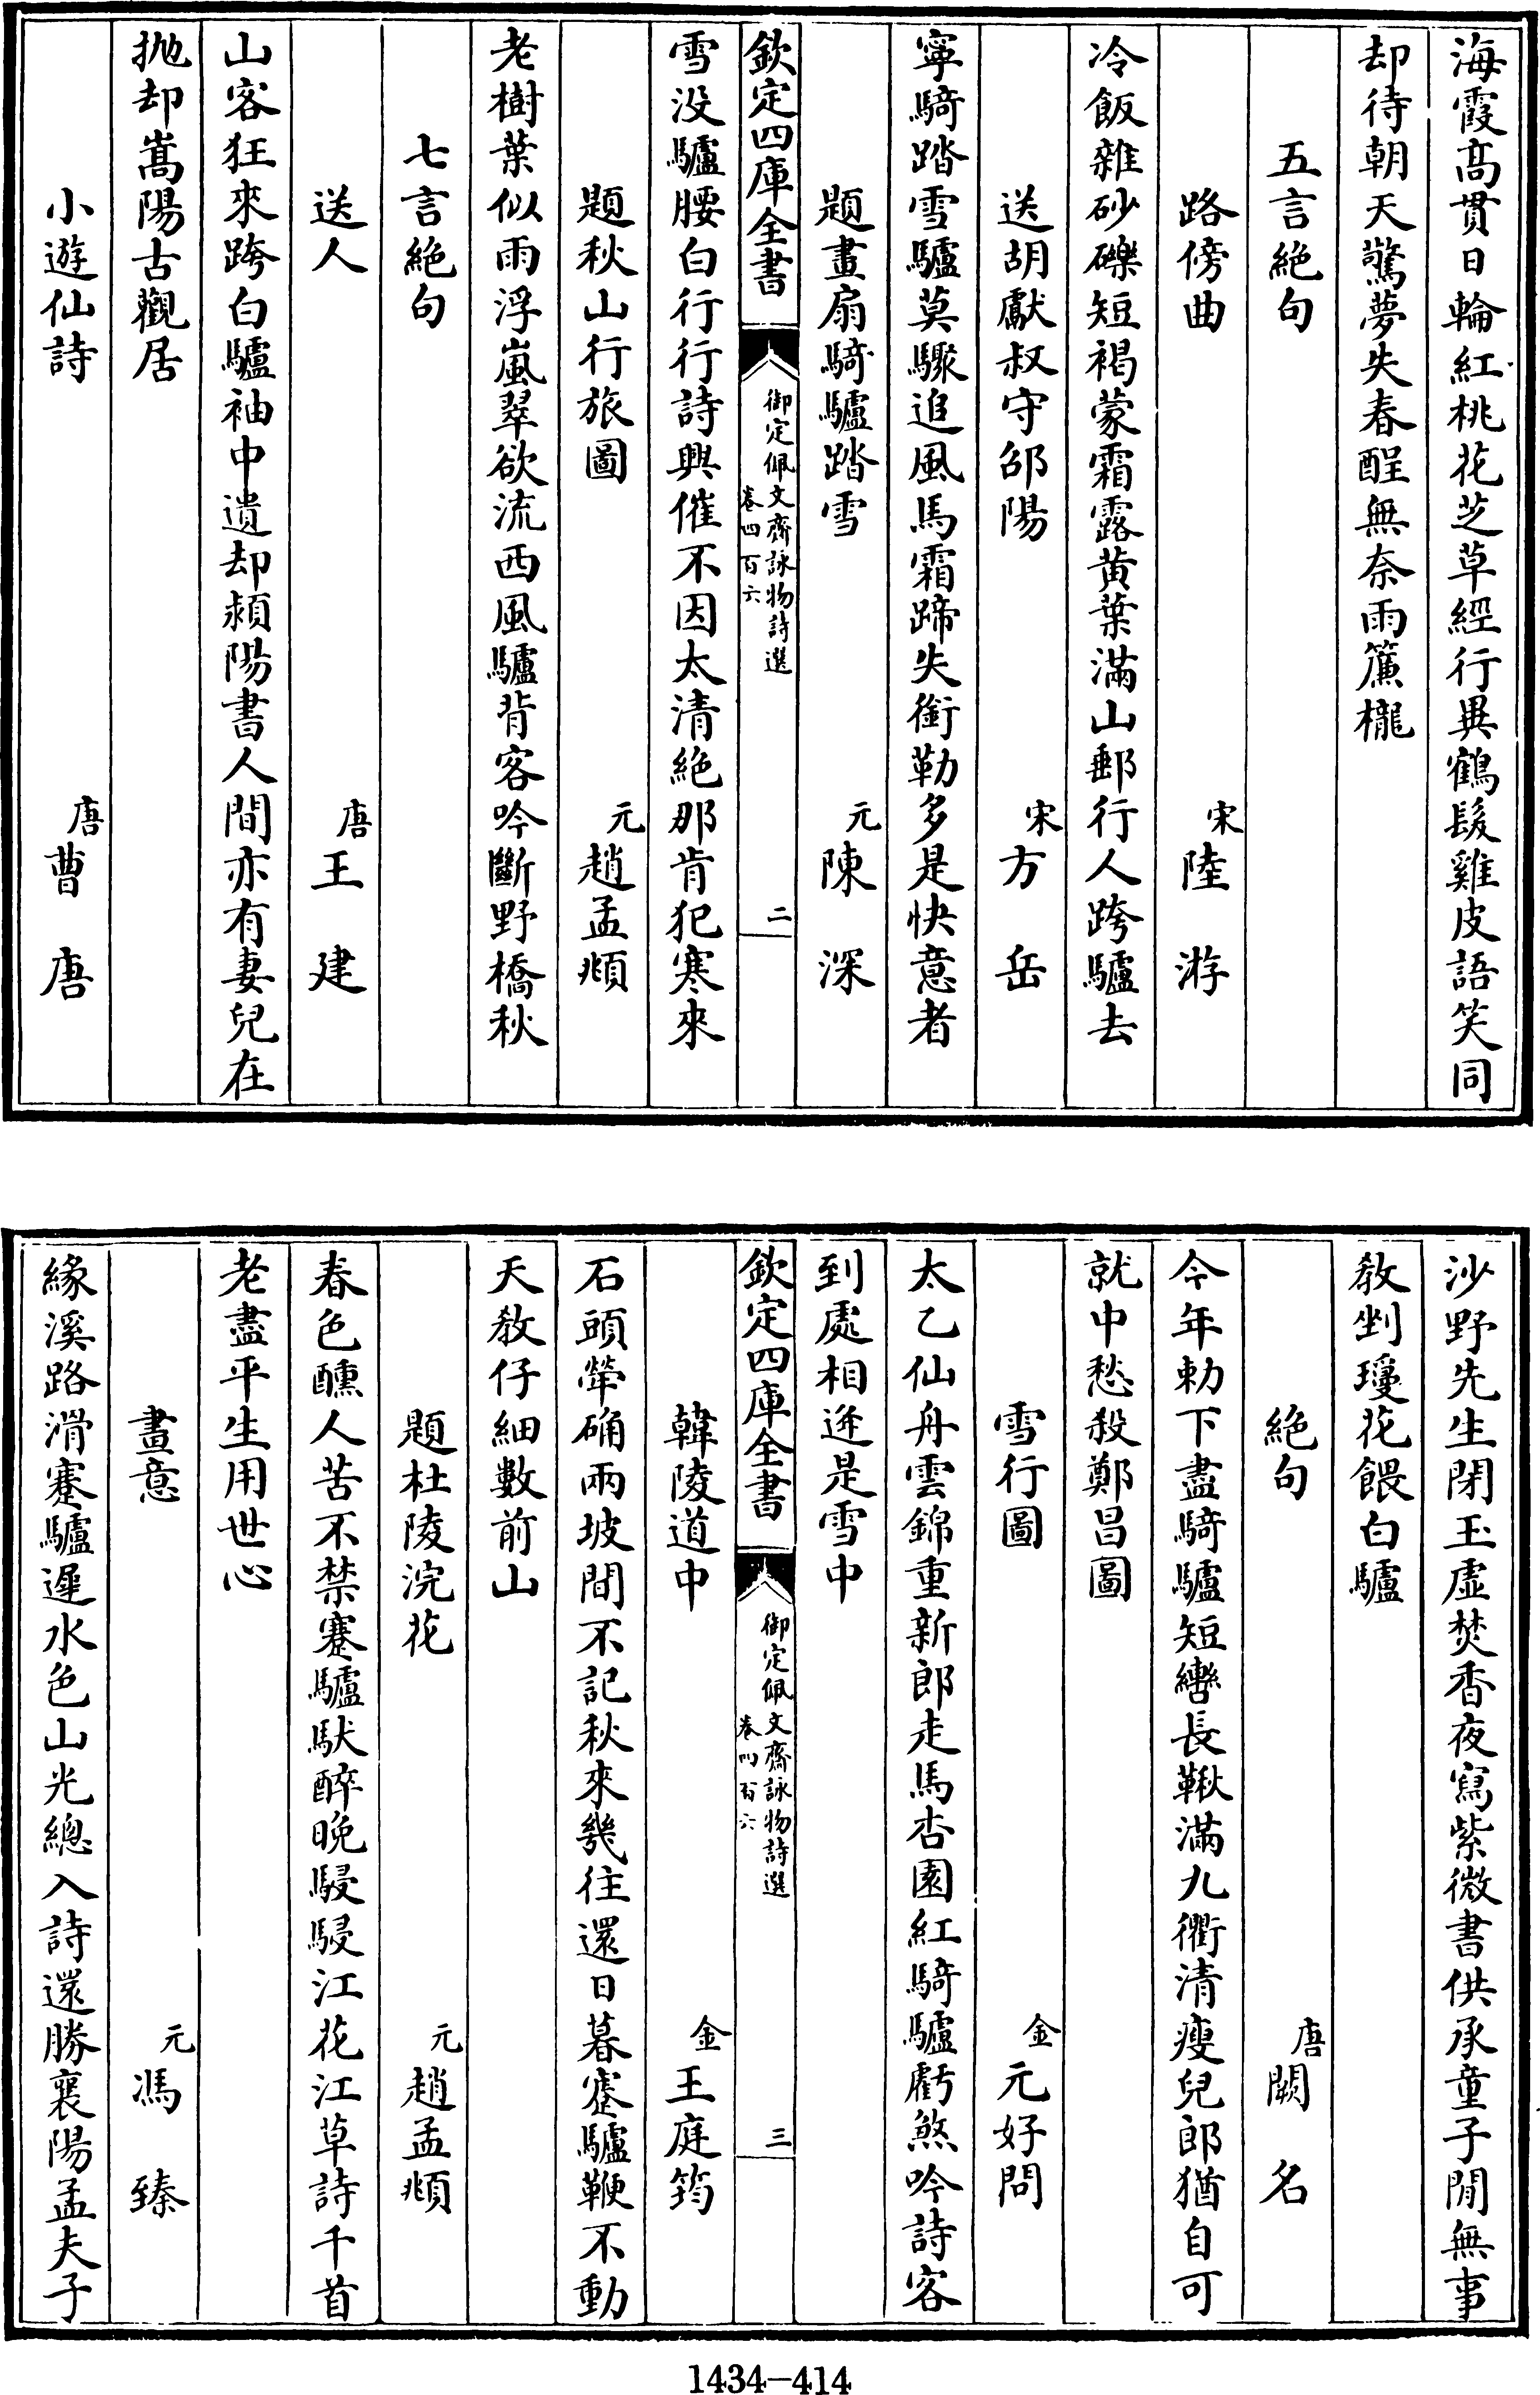 海霞髙貫日輪紅桃花芝草經行異鶴髮雞皮語笑同
却待朝天驚夢失春酲無奈雨簾櫳
五言絶句
路傍曲　宋陸游
冷飯雜砂礫短褐蒙霜露黄葉滿山郵行人跨驢去
送胡獻叔守邵陽　宋方岳
寧騎踏雪驢莫驟追風馬霜蹄失銜勒多是快意者
題畫扇騎驢踏雪　元陳深
欽定四庫全書　御定佩文齋詠物詩選　卷四百六　二
雪没驢腰白行行詩興催不因太清絶那肯犯寒來
題秋山行旅圖　元趙孟頫
老樹葉似雨浮嵐翠欲流西風驢背客吟斷野橋秋
七言絶句
送人　唐王建
山客狂來跨白驢袖中遺却潁陽書人間亦有妻兒在
抛却嵩陽古觀居
小遊仙詩　唐曹唐
沙野先生閉玉虚焚香夜寫紫微書供承童子閒無事
教剉瓊花餵白驢
絶句　唐闕名
今年勅下盡騎驢短轡長鞦滿九衢清瘦兒郎猶自可
就中愁殺鄭昌圖
雪行圖　金元好問
太乙仙舟雲錦重新郎走馬杏園紅騎驢虧煞吟詩客
到處相逢是雪中
欽定四庫全書　御定佩文齋詠物詩選　卷四百六　三
韓陵道中　金王庭筠
石頭犖确兩坡間不記秋來幾往還日暮蹇驢鞭不動
天教仔細數前山
題杜陵浣花　元趙孟頫
春色醺人苦不禁蹇驢馱醉晚駸駸江花江草詩千首
老盡平生用世心
畫意　元馮臻
緣溪路滑蹇驢遲水色山光總入詩還勝襄陽孟夫子
1434-414